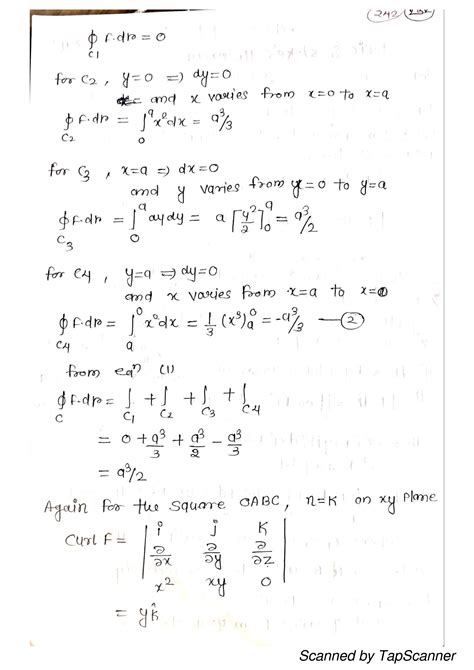 242
∮ F.dr = 0
C1
for C2 , y=0 => dy=0
and x varies from x=0 to x=a
∮ F.dr = ∫ x²dx = a³/3
C2 0 a
for C3 , x=a => dx=0
and y varies from y=0 to y=a
∮ F.dr = ∫ ay dy = a [y²/2]₀ᵃ = a³/2
C3 0 a
for C4 , y=a => dy=0
and x varies from x=a to x=0
∮ F.dr = ∫ x²dx = 1/3 (x³)ₐ⁰ = -a³/3 — ②
C4 a 0
from eqⁿ (1)
∮ F.dr = ∫ + ∫ + ∫ + ∫
C C1 C2 C3 C4
= 0 + a³/3 + a³/2 - a³/3
= a³/2
Again for the square OABC, n=K on xy plane
Curl F = | i j k |
| ∂/∂x ∂/∂y ∂/∂z |
| x² xy 0 |
= yk̂
Scanned by TapScanner